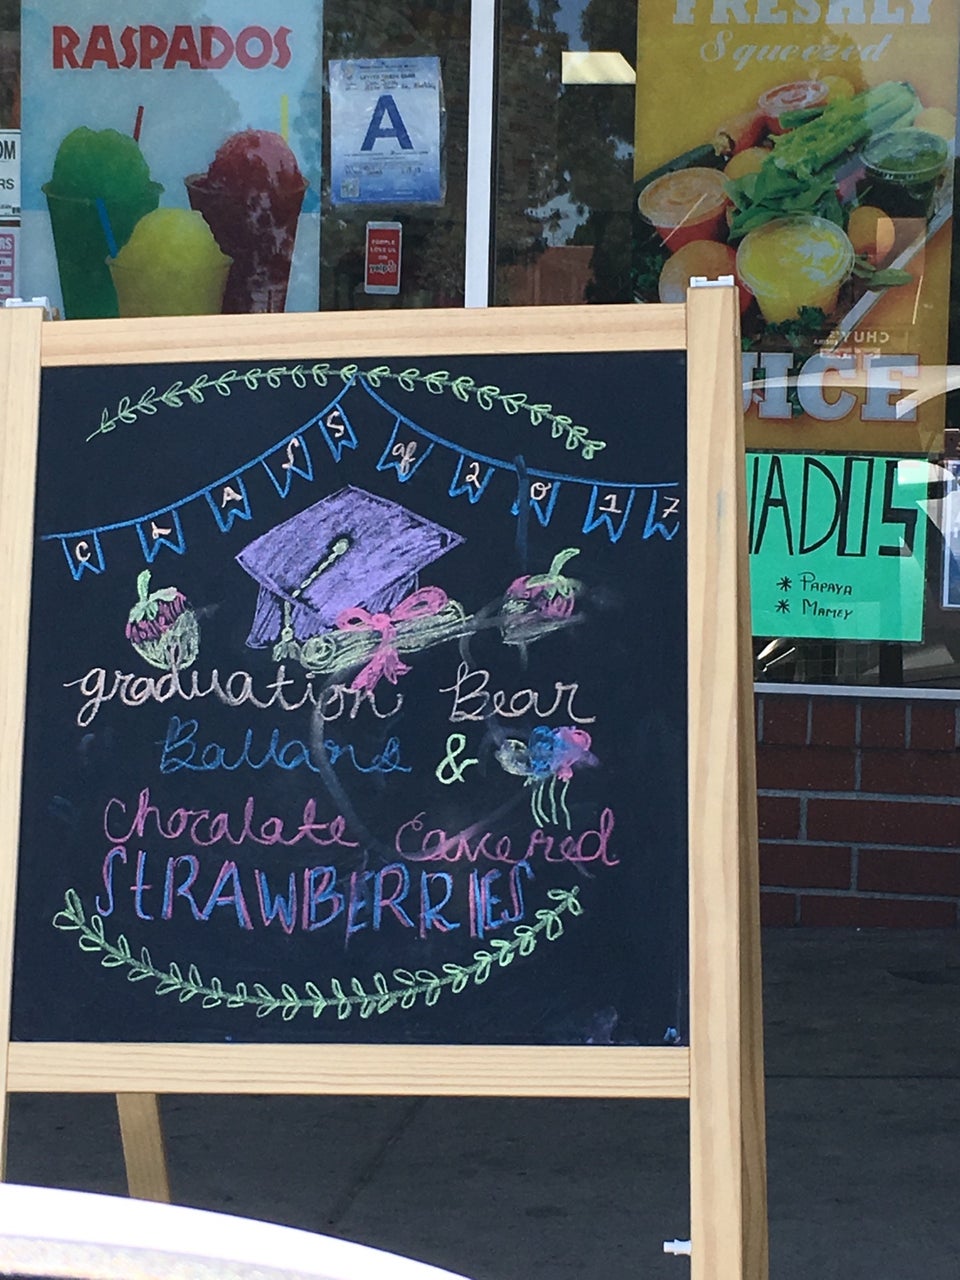 RASPADOS
A
PEOPLE
LOVE US
ON
yelp
FRESHLY
Squeezed
CHUY'S
UICE
IADOS
* PAPAYA
* MAMEY
OM
RS
CLASS of 2017
graduation Bear
Ballons &
chocalate Cavered
STRAWBERRIES